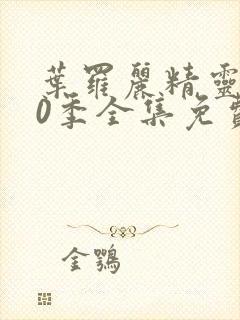 葉羅麗精靈
0季全集免費
金鶚